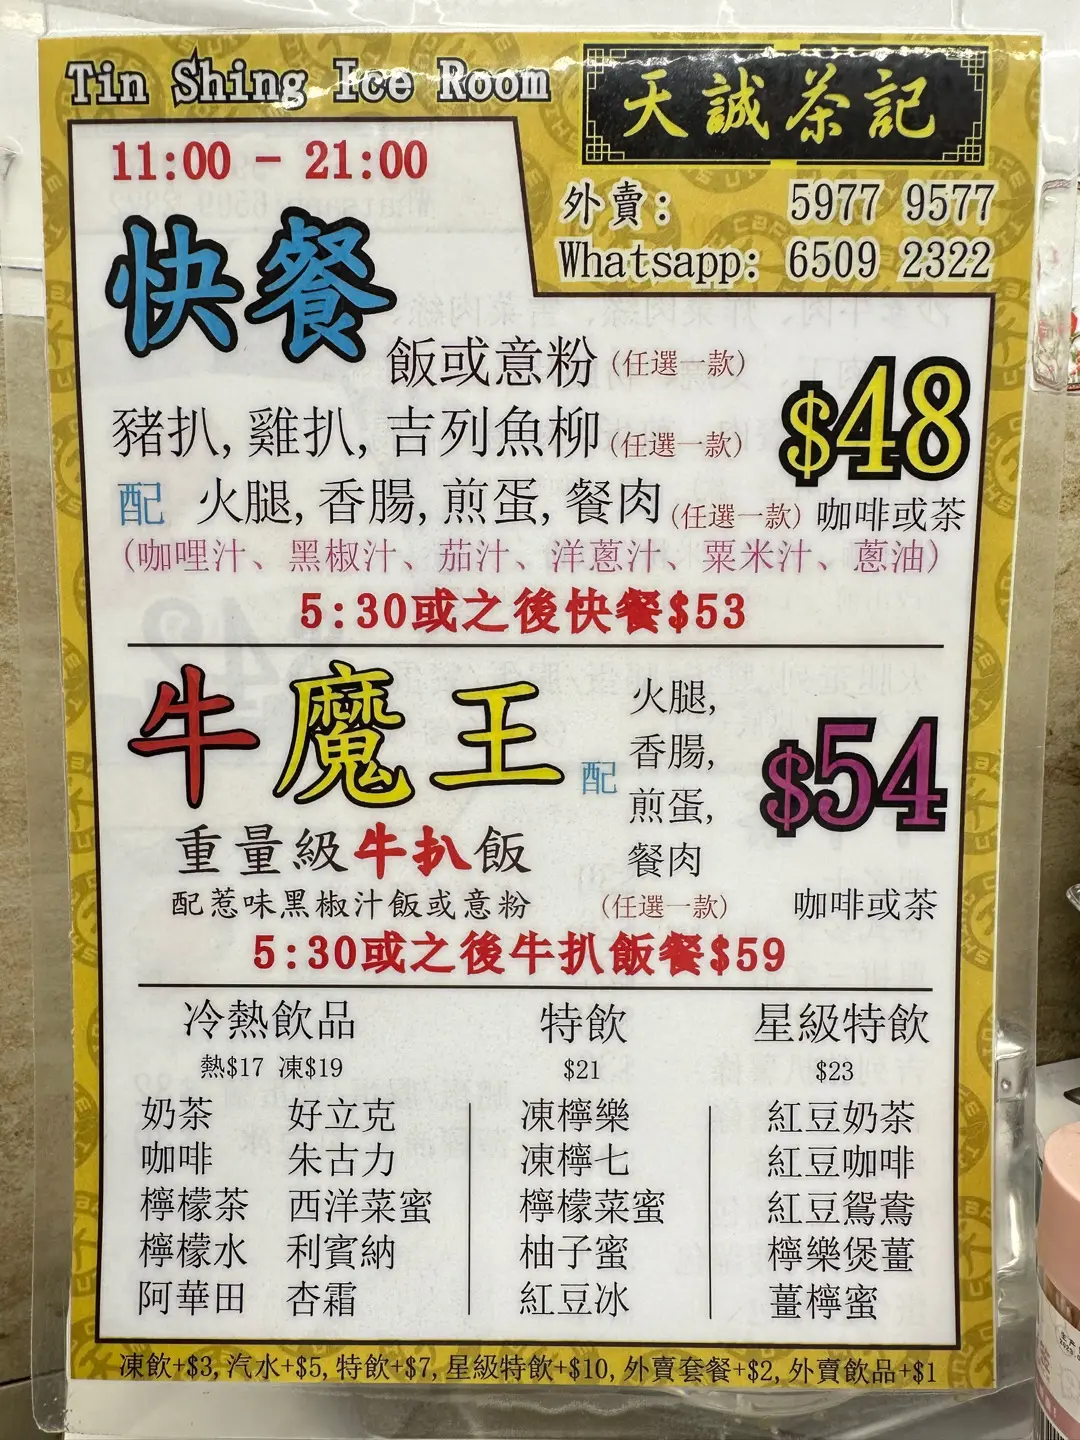 Tin Shing Ice Room
天誠茶記
11:00 - 21:00
外賣: 5977 9577
Whatsapp: 6509 2322
快餐
飯或意粉(任選一款)
$48
豬扒, 雞扒, 吉列魚柳(任選一款)
配 火腿, 香腸, 煎蛋, 餐肉(任選一款) 咖啡或茶
(咖哩汁、黑椒汁、茄汁、洋蔥汁、粟米汁、蔥油)
5:30或之後快餐$53
牛魔王
配
火腿,
香腸,
煎蛋,
餐肉
(任選一款)
$54
咖啡或茶
重量級牛扒飯
配惹味黑椒汁飯或意粉
5:30或之後牛扒飯餐$59
冷熱飲品
熱$17 凍$19
奶茶 好立克
咖啡 朱古力
檸檬茶 西洋菜蜜
檸檬水 利賓納
阿華田 杏霜
特飲
$21
凍檸樂
凍檸七
檸檬菜蜜
柚子蜜
紅豆冰
星級特飲
$23
紅豆奶茶
紅豆咖啡
紅豆鴛鴦
檸樂煲薑
薑檸蜜
凍飲+$3, 汽水+$5, 特飲+$7, 星級特飲+$10, 外賣套餐+$2, 外賣飲品+$1